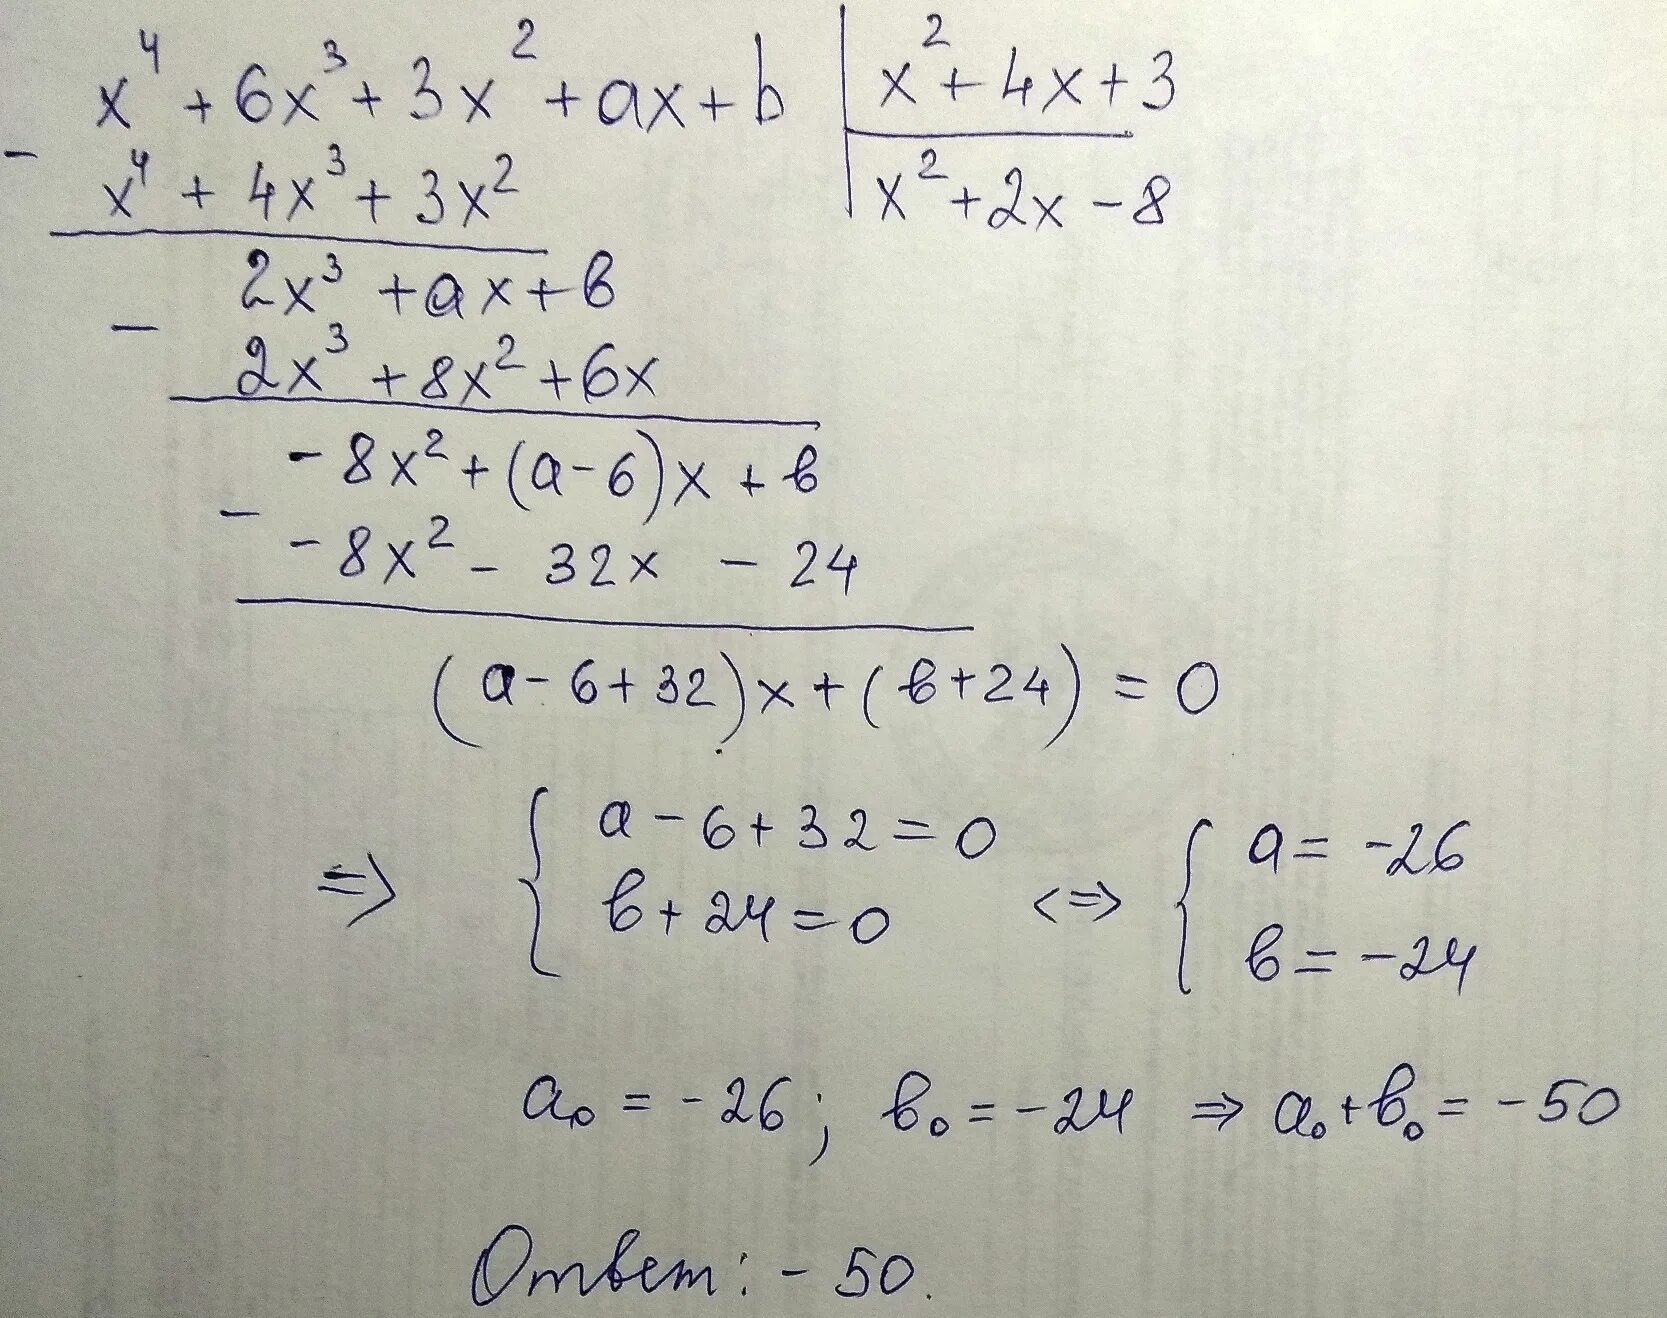 x⁴ + 6x³ + 3x² + ax + b | x² + 4x + 3
− x⁴ + 4x³ + 3x² | x² + 2x − 8
2x³ + ax + в
− 2x³ + 8x² + 6x
−8x² + (a−6)x + в
− −8x² − 32x − 24
(a−6+32)x + (в+24) = 0
⇒ { a−6+32=0 ⇔ { a = −26
в+24=0 в = −24
a₀ = −26; в₀ = −24 ⇒ a₀+в₀ = −50
Ответ: −50.